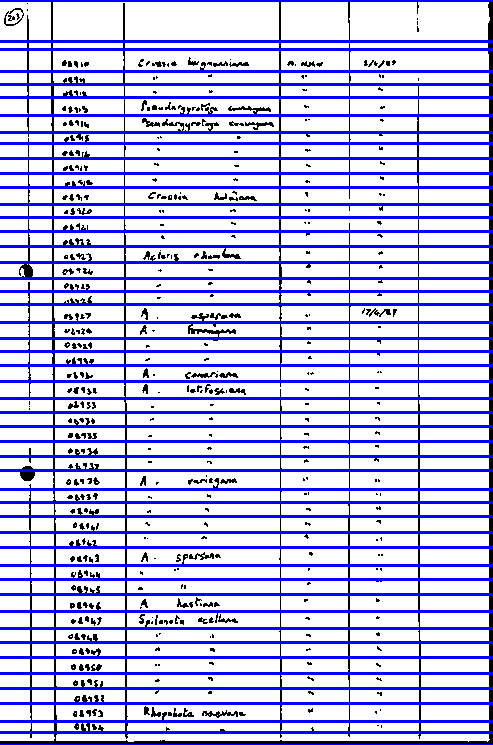 203
08910 Croesia bergmanniana 2/6/87
08911 " " " "
08912 " " " "
08913 Pseudargyrotoza conwagana " "
08914 Pseudargyrotoza conwagana " "
08915 " " " "
08916 " " " "
08917 " " " "
08918 " " " "
08919 Croesia " "
08920 " " " "
08921 " " " "
08922 " " " "
08923 Acleris rhombana " "
08924 " " " "
08925 " " " "
08926 " " " "
08927 A. aspersana " 17/6/87
08928 A. ferrugana " "
08929 " " " "
08930 " " " "
08931 A. comariana " "
08932 A. latifasciana " "
08933 " " " "
08934 " " " "
08935 " " " "
08936 " " " "
08937 " " " "
08938 A. variegana " "
08939 " " " "
08940 " " " "
08941 " " " "
08942 " " " "
08943 A. sparsana " "
08944 " " " "
08945 " " " "
08946 A hastiana " "
08947 Spilonota ocellana " "
08948 " " " "
08949 " " " "
08950 " " " "
08951 " " " "
08952 " " " "
08953 Rhopobota naevana " "
08954 " " " "